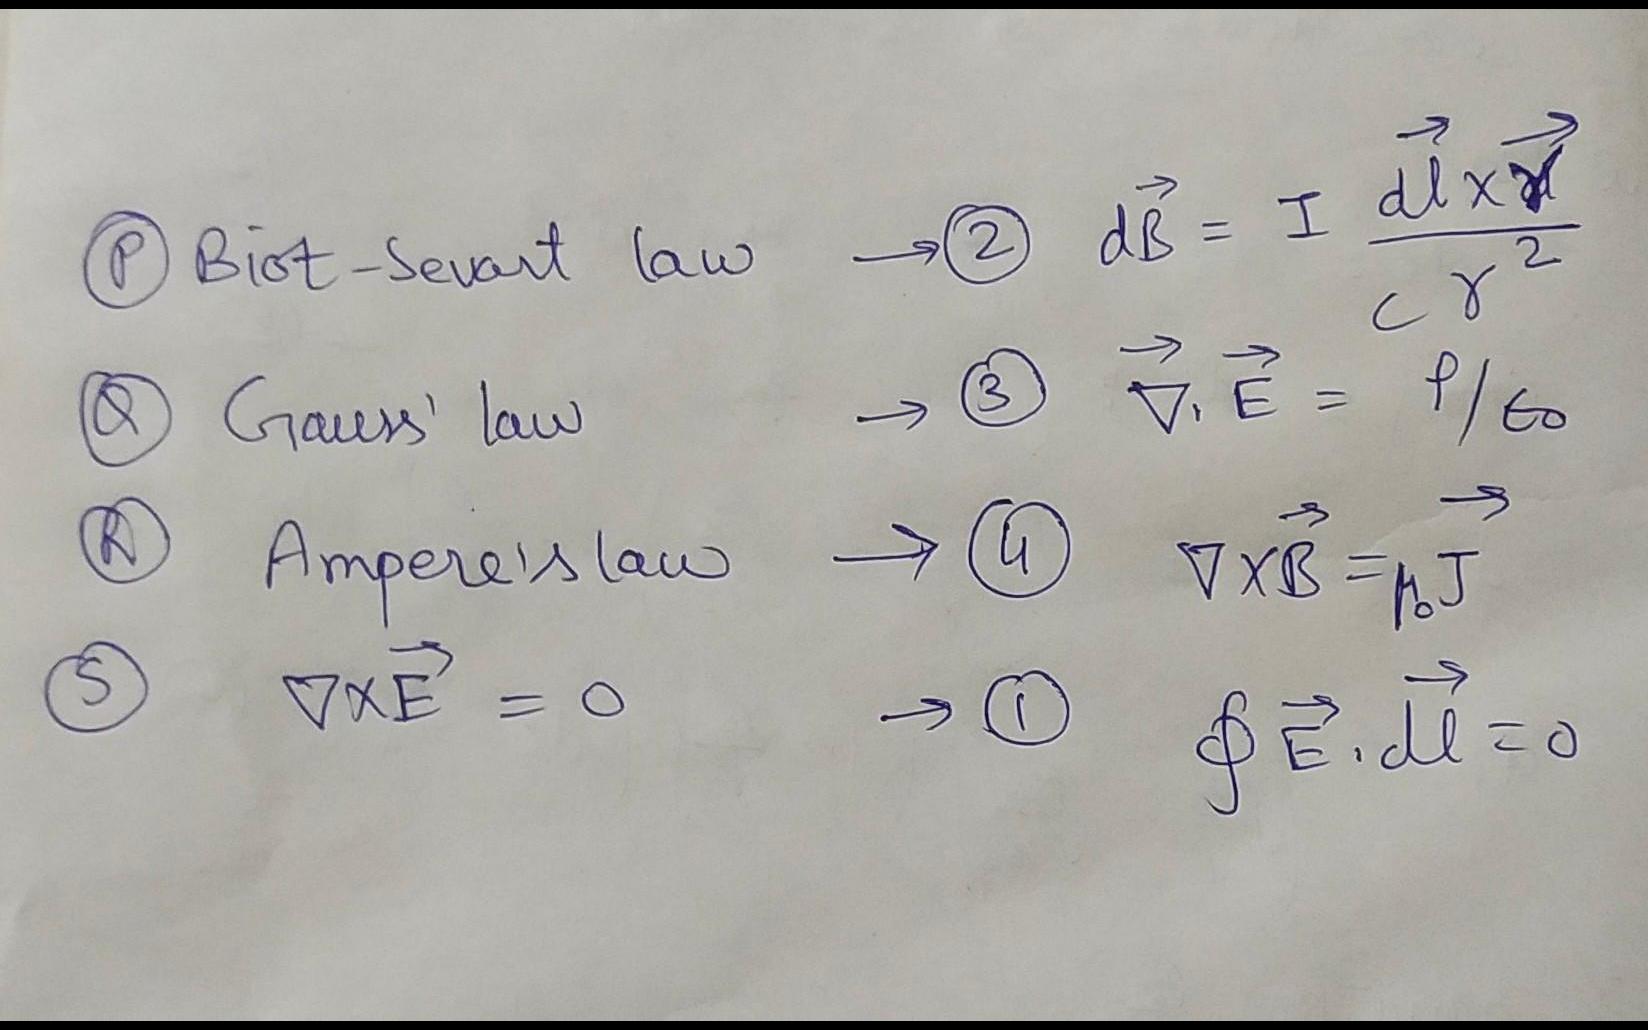 Ⓟ Biot-Sevart law → ② dB⃗ = I (dl⃗ × r⃗) / (c r²)
Ⓠ Gauss' law → ③ ∇⃗. E⃗ = ρ/ϵ₀
Ⓡ Ampere's law → ④ ∇×B⃗ = μ₀J⃗
Ⓢ ∇×E⃗ = 0 → ① ∮ E⃗. dl⃗ = 0